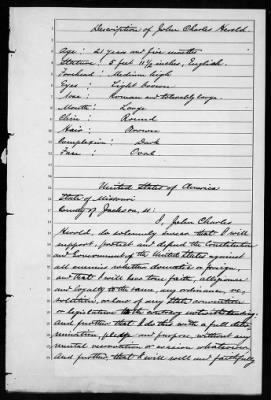 Description of John Charles Herold.
Age: 21 years and five months
Stature: 5 feet 11½ inches, English.
Forehead: Medium high
Eyes: Light brown
Nose: Roman and tolerably large
Mouth: Large
Chin: Round
Hair: Brown
Complexion: Dark
Face: Oval
United States of America
State of Missouri
County of Jackson, ss:
I, John Charles
Herold, do solemnly swear that I will
support, protect and defend the Constitution
and Government of the United States against
all enemies whether domestic or foreign,
and that I will bear true faith, allegiance
and loyalty to the same, any ordinance, re-
solution, or law of any State convention
or legislature to the contrary notwithstanding:
and further that I do this with a full deter-
mination, pledge and purpose, without any
mental reservation or evasion whatsoever;
and further, that I will well and faithfully